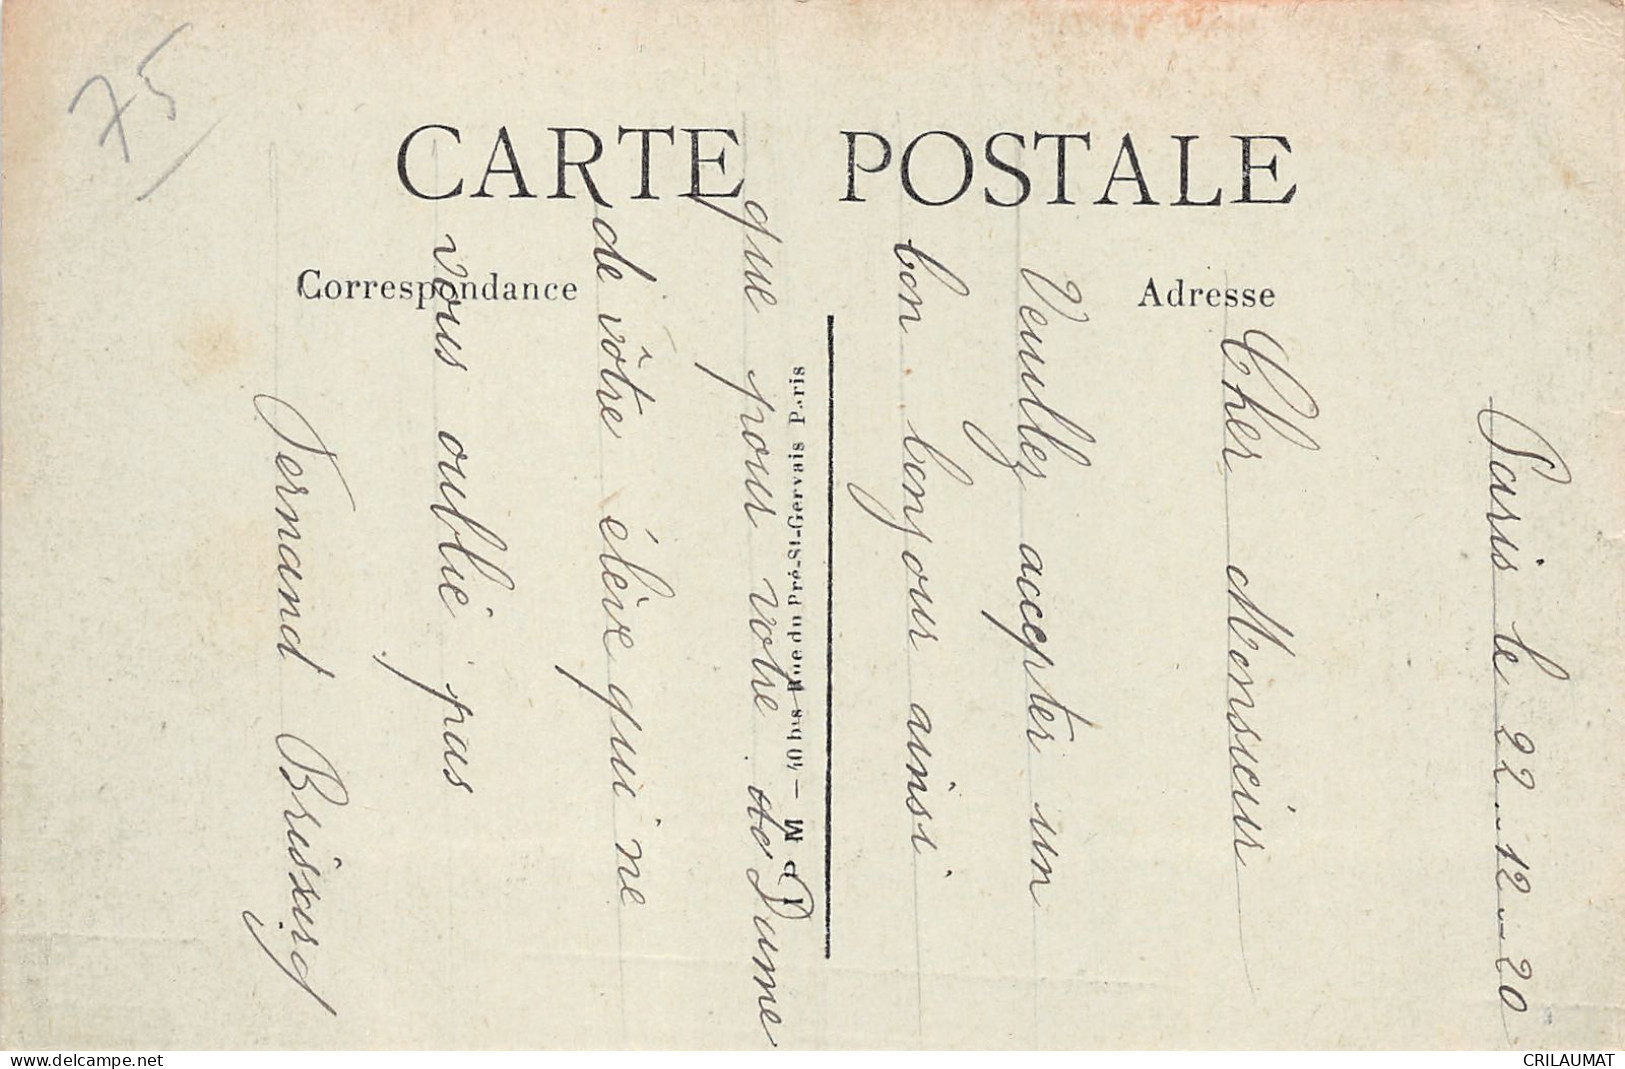 75
CARTE POSTALE
Correspondance
Adresse
Paris le 22-12-20
Cher Monsieur
Veuillez accepter un
bon bonjour ainsi
que pour votre Dame
de vôtre élève qui ne
vous oublié pas
Fernand
40 bis Rue du Pré-St-Gervais Paris
www.delcampe.net
CRILAUMAT